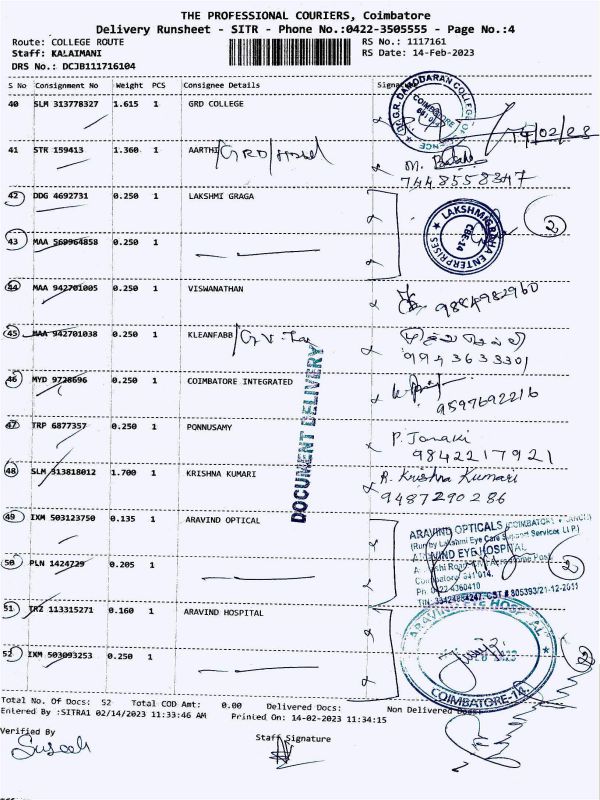 THE PROFESSIONAL COURIERS, Coimbatore
Delivery Runsheet - SITR - Phone No.:0422-3505555 - Page No.:4
Route: COLLEGE ROUTE RS No.: 1117161
Staff: KALAIMANI RS Date: 14-Feb-2023
DRS No.: DCJB111716104
S No Consignment No Weight PCS Consignee Details Signature
40 SLM 313778327 1.615 1 GRD COLLEGE
14/02/23
41 STR 159413 1.360 1 AARTHI GRD/Hostel
7448558347
42 DDG 4692731 0.250 1 LAKSHMI GRAGA 2
LAKSHMIGRAHA ENTERPRISES CBE-14
43 MAA 569964858 0.250 1
44 MAA 942701005 0.250 1 VISWANATHAN
9884982960
45 MAA 942701038 0.250 1 KLEANFABB
9943633301
46 MYD 9728696 0.250 1 COIMBATORE INTEGRATED
9597692216
DOCUMENT DELIVERY
47 TRP 6877357 0.250 1 PONNUSAMY P. Janaki
9842217921
48 SLM 313818012 1.700 1 KRISHNA KUMARI R. Krishna Kumari
9487290286
49 IXM 503123750 0.135 1 ARAVIND OPTICAL
ARAVIND OPTICALS
(Run by Lakshmi Eye Care Support Services LLP.)
EYE HOSPITAL
50 PLN 1424729 0.205 1 2
Coimbatore 641 014.
51 TRZ 113315271 0.160 1 ARAVIND HOSPITAL
ARAVIND EYE HOSPITAL
52 IXM 503093253 0.250 1 2
COIMBATORE-14
Total No. Of Docs: 52 Total COD Amt: 0.00 Delivered Docs: Non Delivered Docs:
Entered By :SITRA1 02/14/2023 11:33:46 AM Printed On: 14-02-2023 11:34:15
Verified By Staff Signature